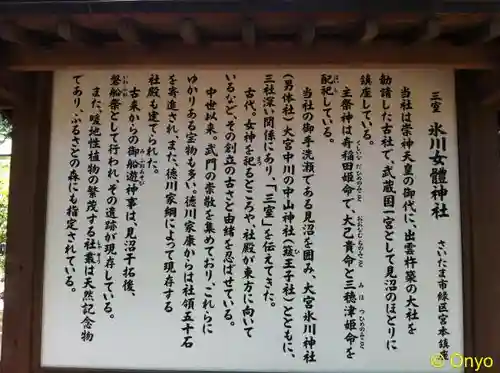 三室 氷川女體神社
さいたま市緑区宮本鎮座
当社は崇神天皇の御代に、出雲杵築の大社を
勧請した古社で、武蔵国一宮として見沼のほとりに
鎮座している。
主祭神は奇稲田姫命で、大己貴命と三穂津姫命を
配祀している。
当社の御手洗瀬である見沼を囲み、大宮氷川神社
(男体社)大宮中川の中山神社(簸王子社)とともに、
三社深い関係にあり、「三室」を伝えてきた。
古代、女神を祀るところや、社殿が東方に向いて
いるなど、その創立の古さと由緒を忍ばせている。
中世以来、武門の崇敬を集めており、これらに
ゆかりある宝物も多い。徳川家康からは社領五十石
を寄進され、また、徳川家綱によって現存する
社殿も建てられた。
古来からの御船遊神事は、見沼干拓後、
磐船祭として行われ、その遺跡が現存している。
また、暖地性植物の繁茂する社叢は天然記念物
であり、ふるさとの森にも指定されている。
© Onyo